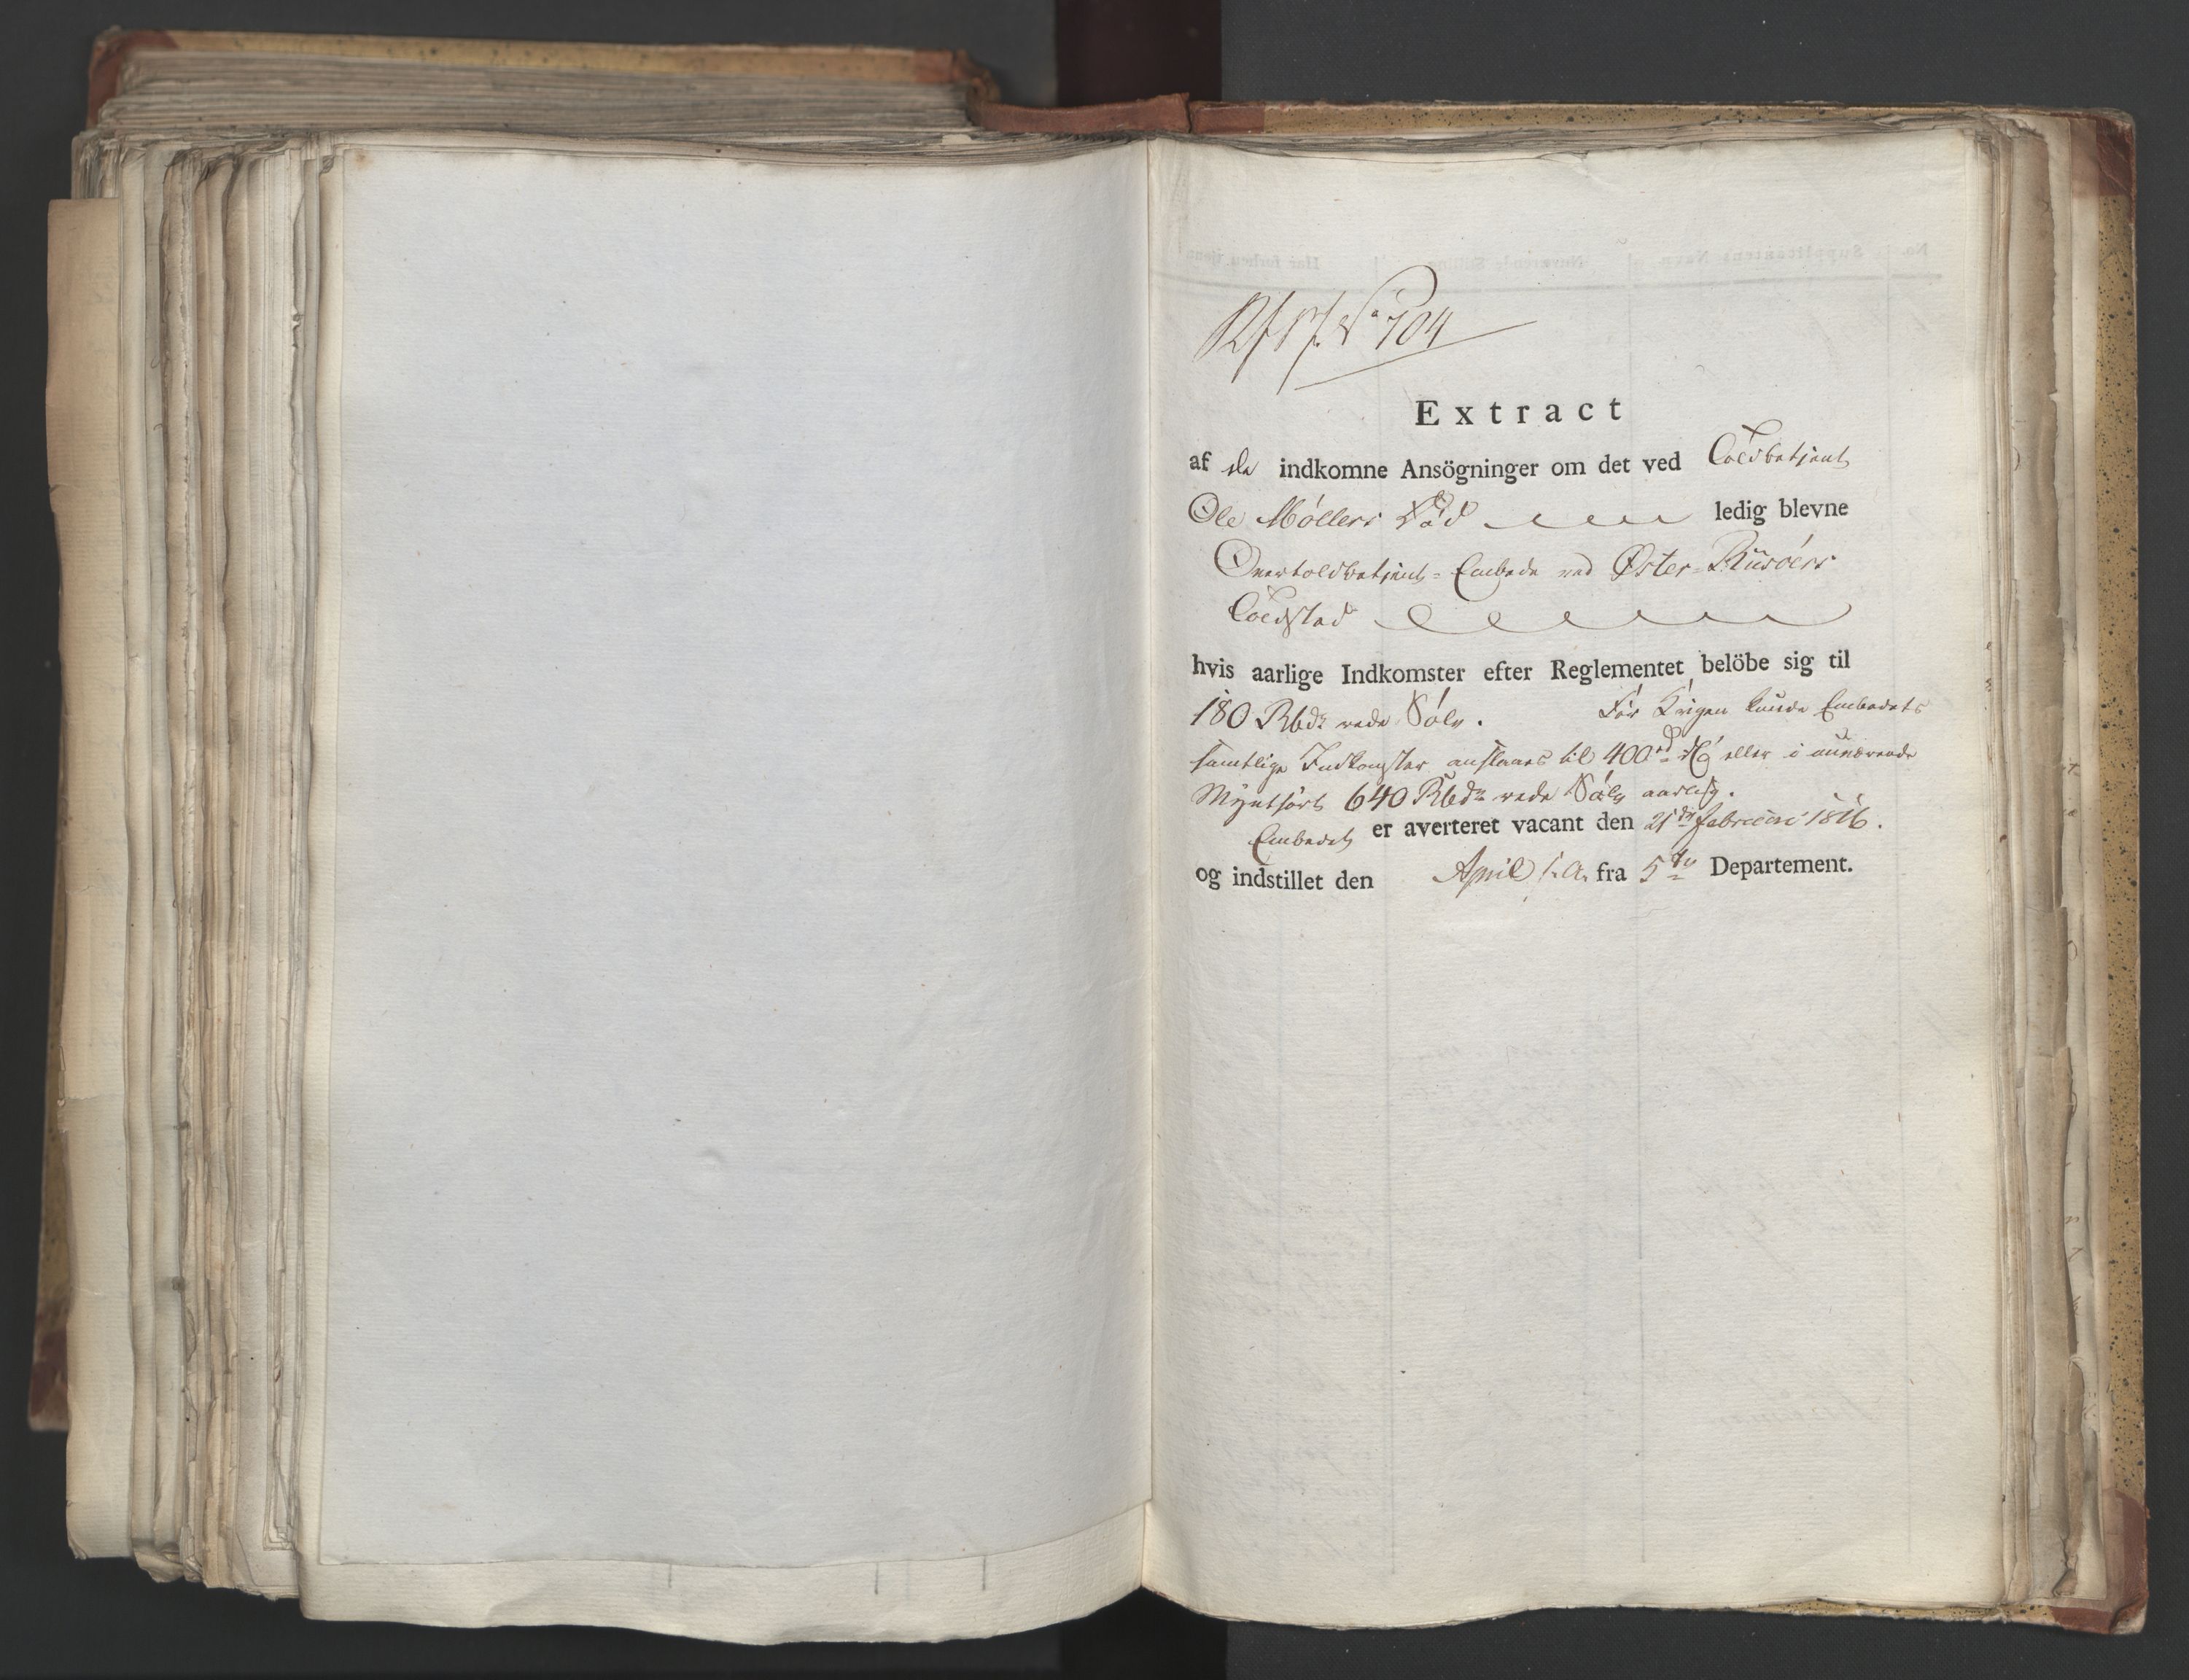 No 704
Extract
af de indkomne Ansögninger om det ved Toldbetjent
Ole Møllers Død ledig blevne
Overtoldbetjent-Embede ved Øster-Riisöers
Toldsted
hvis aarlige Indkomster efter Reglementet belöbe sig til
180 Rbdr rede Sølv. Før Krigen kunde Embedets
samtlige Indkomster anslaaes til 400 rd eller i nuværende
Myntsort 640 Rbdr rede Sølv aarlig.
Embedet er averteret vacant den 21de Februari 1816.
og indstillet den April s. A. fra 5te Departement.